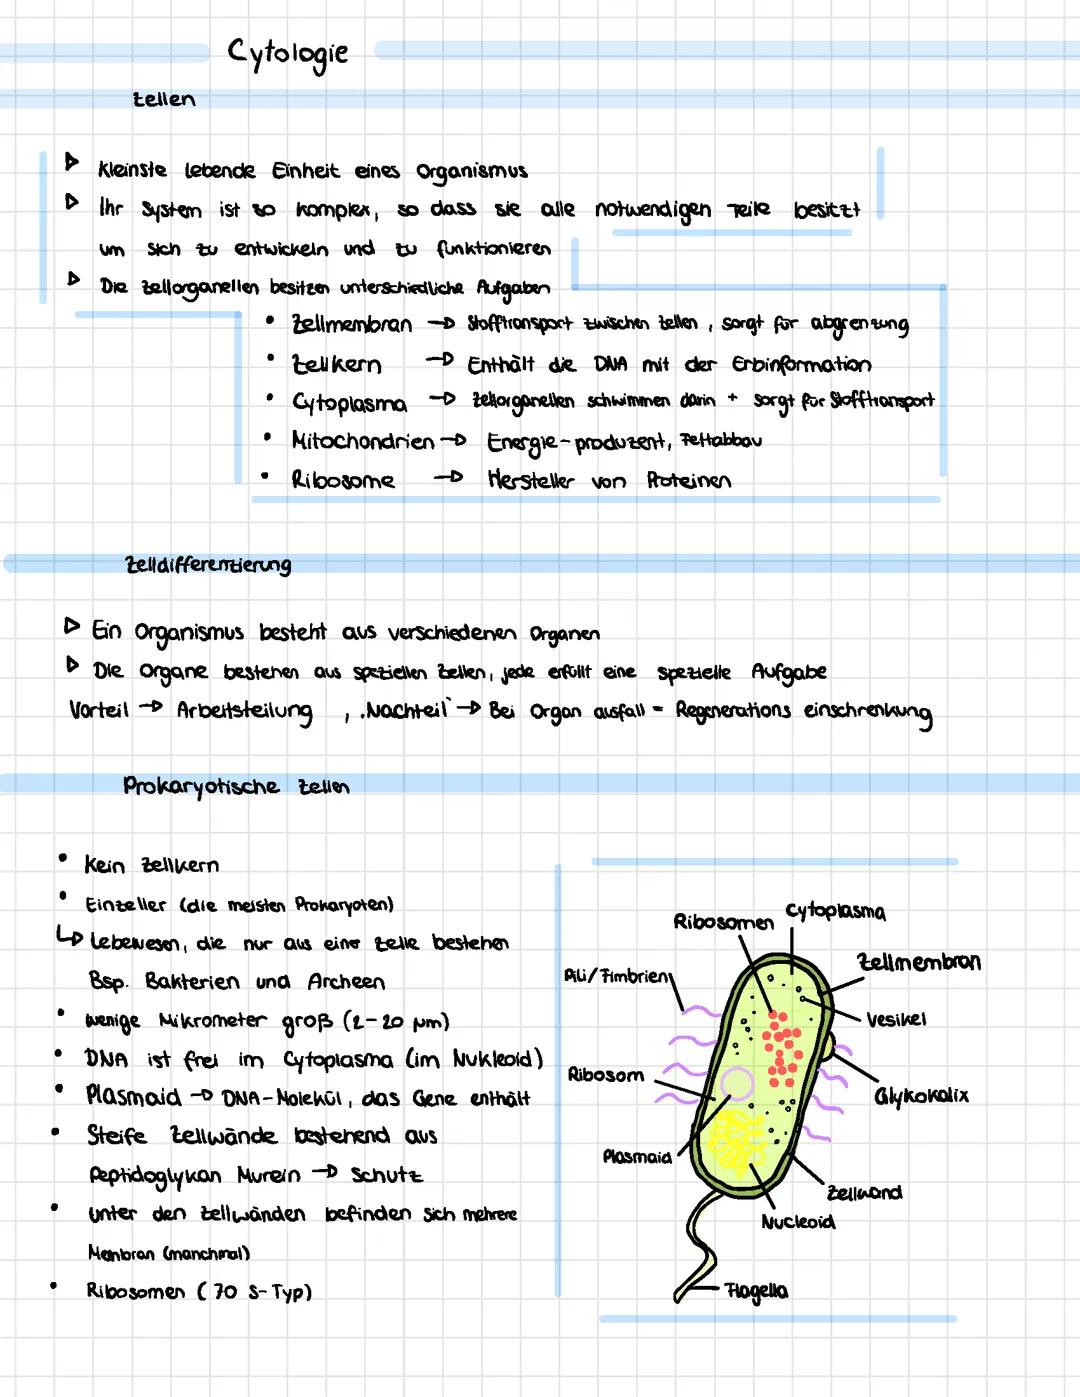 Cytologie
Zellen
Kleinste lebende Einheit eines Organismus
Ihr System ist so komplex, so dass sie alle notwendigen Teile besitzt
um sich zu entwickeln und zu funktionieren
Die Zellorganellen besitzen unterschiedliche Aufgaben
• Zellmembran → Stofftransport zwischen Zellen, sorgt für abgrenzung
• Zellkern → Enthält die DNA mit der Erbinformation
• Cytoplasma → Zellorganellen schwimmen darin + sorgt für Stofftransport
• Mitochondrien → Energie-produzent, Fettabbau
• Ribosome → Hersteller von Proteinen
Zelldifferenzierung
Ein Organismus besteht aus verschiedenen Organen
Die Organe bestehen aus speziellen Zellen, jede erfüllt eine spezielle Aufgabe
Vorteil → Arbeitsteilung , .Nachteil → Bei Organ ausfall = Regenerations einschrenkung
Prokaryotische Zellen
• Kein Zellkern
• Einzeller (die meisten Prokaryoten)
↳ Lebewesen, die nur aus einer Zelle bestehen
Bsp. Bakterien und Archeen
• wenige Mikrometer groß (2-20 µm)
• DNA ist frei im Cytoplasma (im Nukleoid)
• Plasmaid → DNA-Molekül, das Gene enthält
• Steife Zellwände bestehend aus
Peptidoglykan Murein → Schutz
• unter den Zellwänden befinden sich mehrere
Membran (manchmal)
• Ribosomen (70 S-Typ)
Ribosomen
Cytoplasma
Zellmembran
Pili/Fimbrien
Vesikel
Ribosom
Glykokalix
Plasmaid
Zellwand
Nucleoid
Flagella